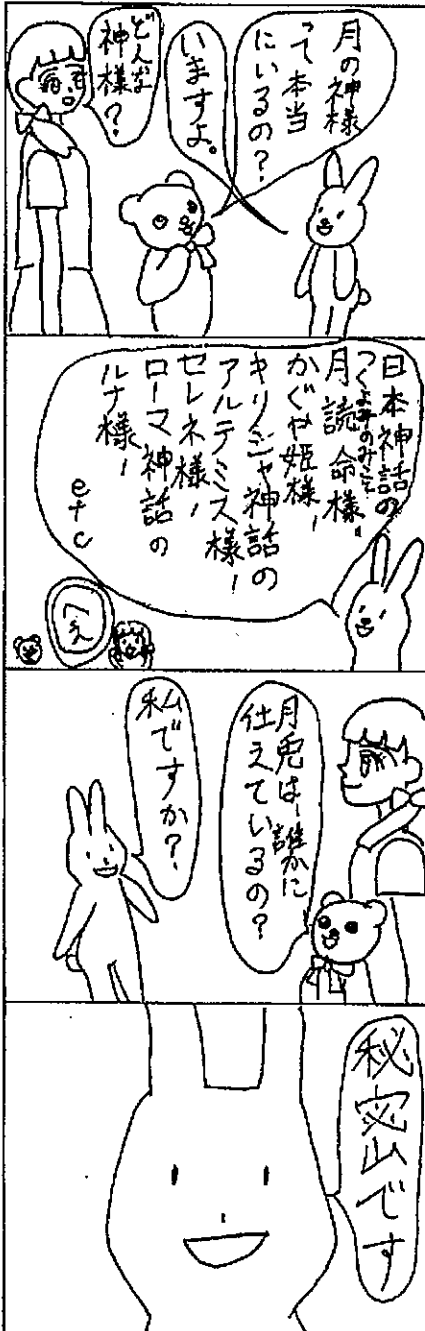 月の神様
って本当
にいるの？
いますよ。
どんな
神様？
日本神話の
つくよみのみこと
月読命様、
かぐや姫様、
ギリシャ神話の
アルテミス様、
セレネ様、
ローマ神話の
ルナ様、
etc
へぇ
月兎は、誰かに
仕えているの？
私ですか？
秘密です